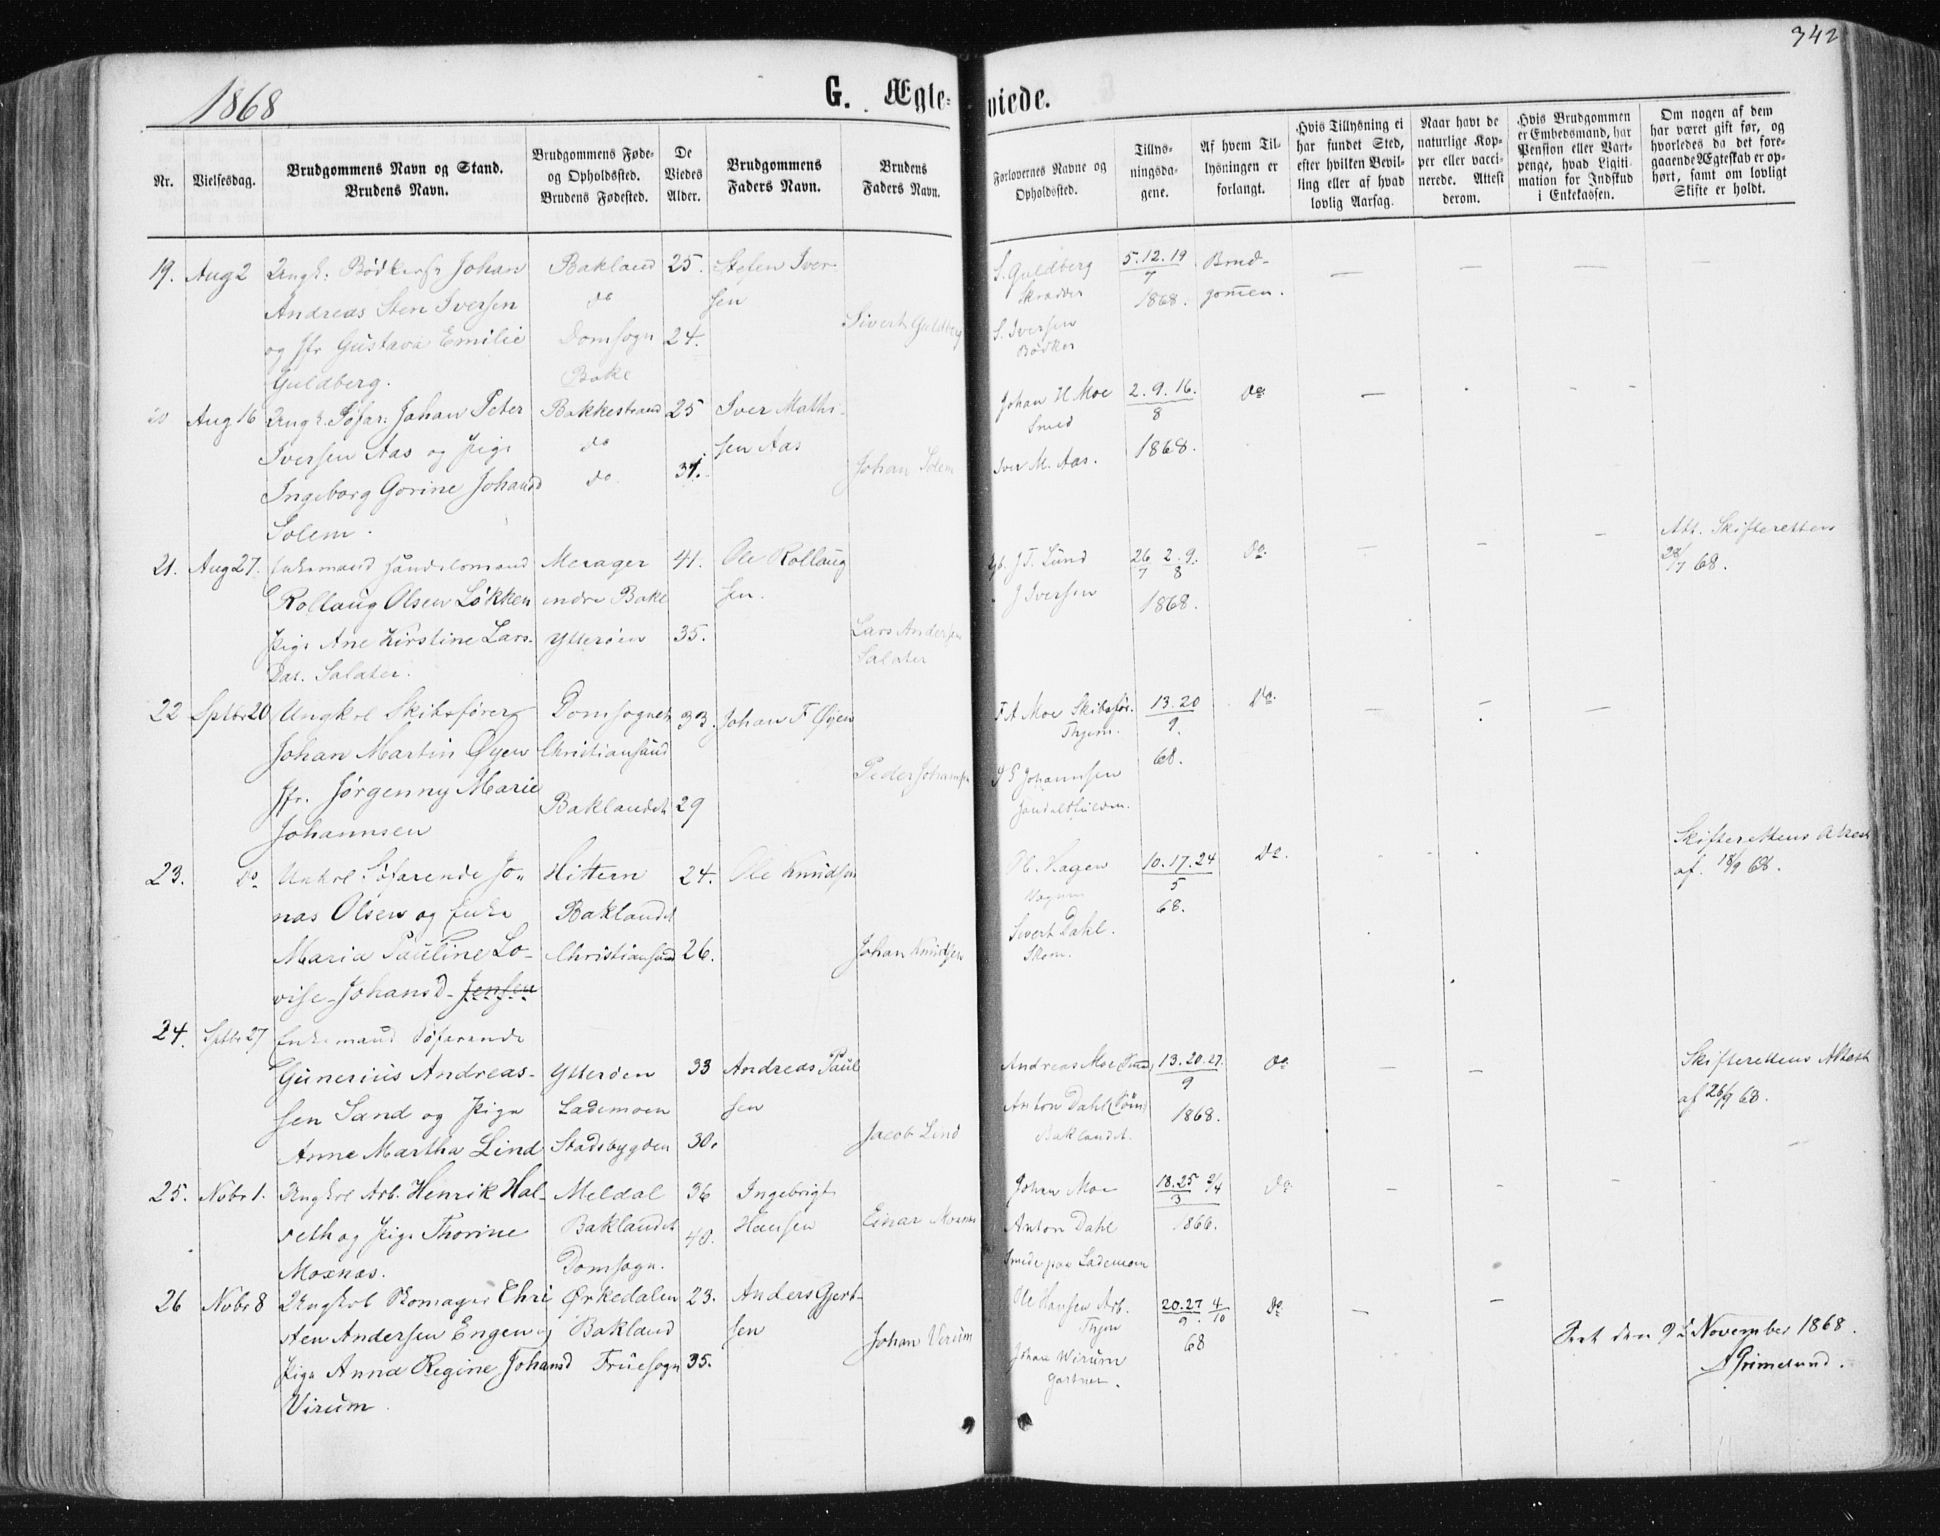 342
1868
G. Ægte-
viede.
Nr.
Vielsesdag.
Brudgommens Navn og Stand.
Brudens Navn.
Brudgommens Føde-
og Opholdssted.
Brudens Fødested.
De
Viedes
Alder.
Brudgommens
Faders Navn.
Brudens
Faders Navn.
Forlovernes Navne og
Opholdssted.
Tillys-
ningsda-
gene.
Af hvem Til-
lysningen er
forlangt.
Hvis Tillysning ei
har fundet Sted,
efter hvilken Bevil-
ling eller af hvad
lovlig Aarsag.
Naar havt de
naturlige Kop-
per eller vacci-
nerede. Attest
derom.
Hvis Brudgommen
er Embedsmand, har
Pension eller Vart-
penge, hvad Ligiti-
mation for Indskud
i Enkekassen.
Om nogen af dem
har været gift før, og
hvorledes da det fore-
gaaende Ægteskab er op-
hørt, samt om lovligt
Skifte er holdt.
19. Aug 2 Ungk: Johan Bakland 25. Stefen Iver- S. Guldberg 5. 12. 19 Brud- — — — —
Andreas Sten Iversen do sen Skrædder 7 gomen.
og Jfr Gustava Emilie Domsogn 24. Sivert Guldberg S. Iversen 1868.
Guldberg. Bakl Bødker
20 Aug 16 Ungk. Søfar: Johan Peter Bakkestrand 25 Iver Mathi- Johan H Moe 2. 9. 16. Do — —
Iversen Aas og Pige do sen Aas Smed 8
Ingeborg Gorine Johansd do. 31. Johan Solem Iver M. Aas. 1868.
Solem.
21. Aug 27. Enkemand Handelsmand Merager 41. Ole Rollaug J. T. Lund 26 2. 9. Do. — — — Att. Skifterettens
Rollaug Olsen Løkken indre Bakl sen. J Iversen 7 8 28/7 68.
Pige Ane Kirstine Lars- Ytterøen 35. Lars Andersen 1868.
Dat. Salater. Salater
22 Sptbr 20 Ungkrl Skibsfører Domsognet 33. Johan F Øyen F A Moe Skibsfør. 13. 20 Do. — — —
Johan Martin Øyen Christiansund Thjem. 9.
Jfr. Jørgenny Marie Baklandet 29 Peder Johannsen P E Johannsen 68.
Johannsen
23. Do Unkrl Søfarende Jo- Hittern 24. Ole Knudsen Ol. Hagen 10. 17. 24 Do. Skifterettens Attest
nas Olsen og Enke Baklandet 5 af. 18/9 68.
Maria Pauline Lo- Christiansund 26. Johan Knudsen Sivert Dahl. 68.
vise Johansd. Jensen Skom.
24. Sptbr 27 Enkemand Søfarende
Gunerius Andreas- Ytterøen 33 Andreas Paul Andreas Moe (Smed) 13. 20. 27. Do — — Skifterettens Attest
sen Sand og Pige Lademoen sen Anton Dahl 9 af 26/9 68.
Anne Martha Lind Stadsbygden 30. Jacob Lind Baklandet. 1868.
25. Nvbr 1. Ungkrl Arb. Henrik Hal- Meldal 36 Ingebrigt Johan Moe 18. 25 2/4 Do — — — —
seth og Pige Thorine Baklandet 40. Hansen Einar Moxnæs Anton Dahl 3
Moxnæs. Domsogn. Smede paa Lademoen 1866.
26 Nvbr 8 Ungkrl Skomager Chri Ørkedalen 23. Anders Gjert- Ole Hansen Arb. 20. 27 4 Do — —
sten Andersen Engen og Bakland sen Thjem 9. 10
Pige Anna Regine Johansd Fruesogn 35. Johan Virum Johan Wirum 68
Virum. Gartner.
Seet den 9de November 1868.
A Grimelund.